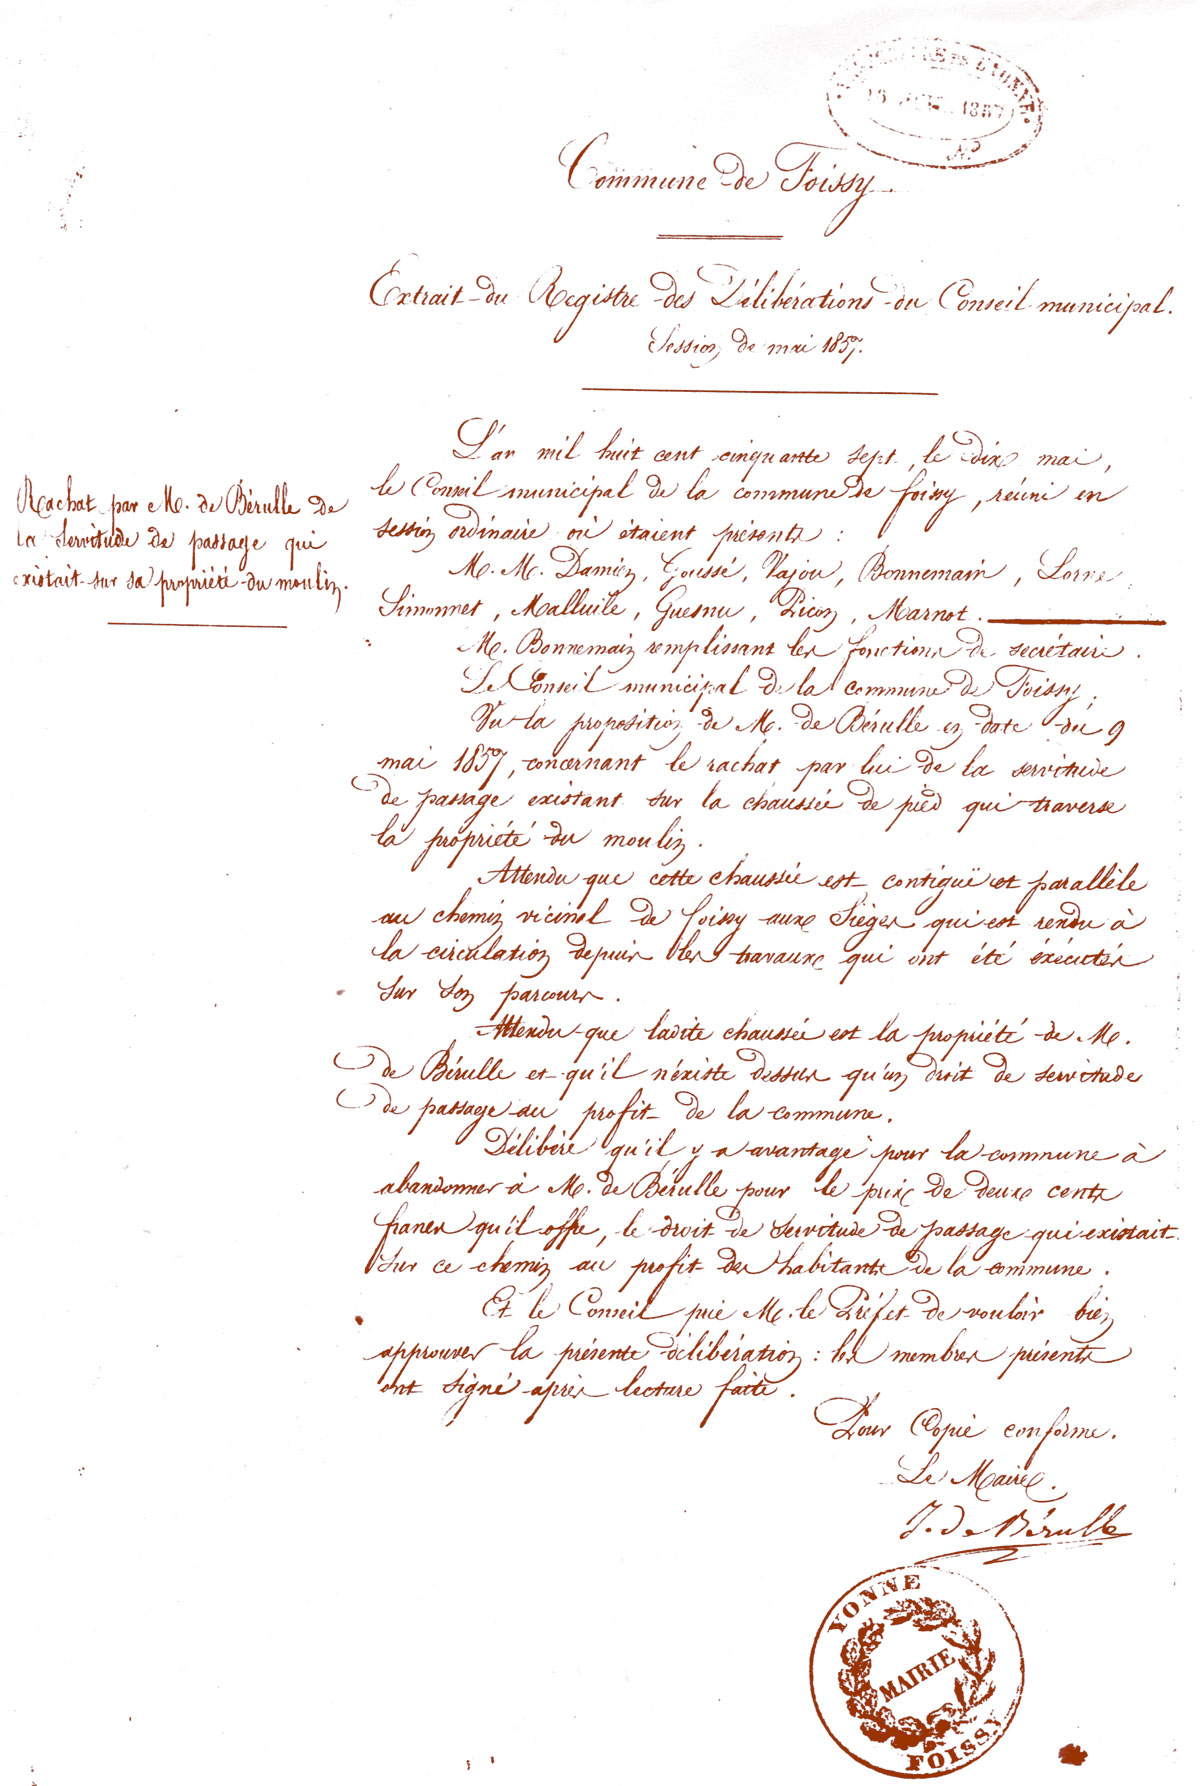 DE L'YONNE
1857
Commune de Foissy.
Extrait du Registre des Délibérations du Conseil municipal.
Session de mai 1857.
Rachat par M. de Bérulle de
la Servitude de passage qui
existait sur sa propriété du moulin.
L'an mil huit cent cinquante sept, le dix mai,
le Conseil municipal de la commune de foissy, réuni en
session ordinaire où étaient présents :
M. M. Damien, Goussé, Vajou, Bonnemain, Lorne
Simonnet, Malluile, Guesnu, Picon, Marnot.
M. Bonnemain remplissant les fonctions de secrétaire.
Le Conseil municipal de la commune de Foissy,
Vu la proposition de M. de Bérulle en date du 9
mai 1857, concernant le rachat par lui de la servitude
de passage existant sur la chaussée de pied qui traverse
la propriété du moulin.
Attendu que cette chaussée est contiguë et parallèle
au chemin vicinal de foissy aux Sièges qui est rendu à
la circulation depuis les travaux qui ont été éxécutés
sur son parcours.
Attendu que ladite chaussée est la propriété de M.
de Bérulle et qu'il n'éxiste dessus qu'un droit de servitude
de passage au profit de la commune.
Délibère qu'il y a avantage pour la commune à
abandonner à M. de Bérulle pour le prix de deux cents
francs qu'il offre, le droit de servitude de passage qui existait
sur ce chemin au profit des habitants de la commune.
Et le Conseil prie M. le Préfet de vouloir bien
approuver la présente délibération : les membres présents
ont signé après lecture faite.
Pour Copie conforme.
Le Maire.
J. de Bérulle
YONNE
MAIRIE
FOISSY